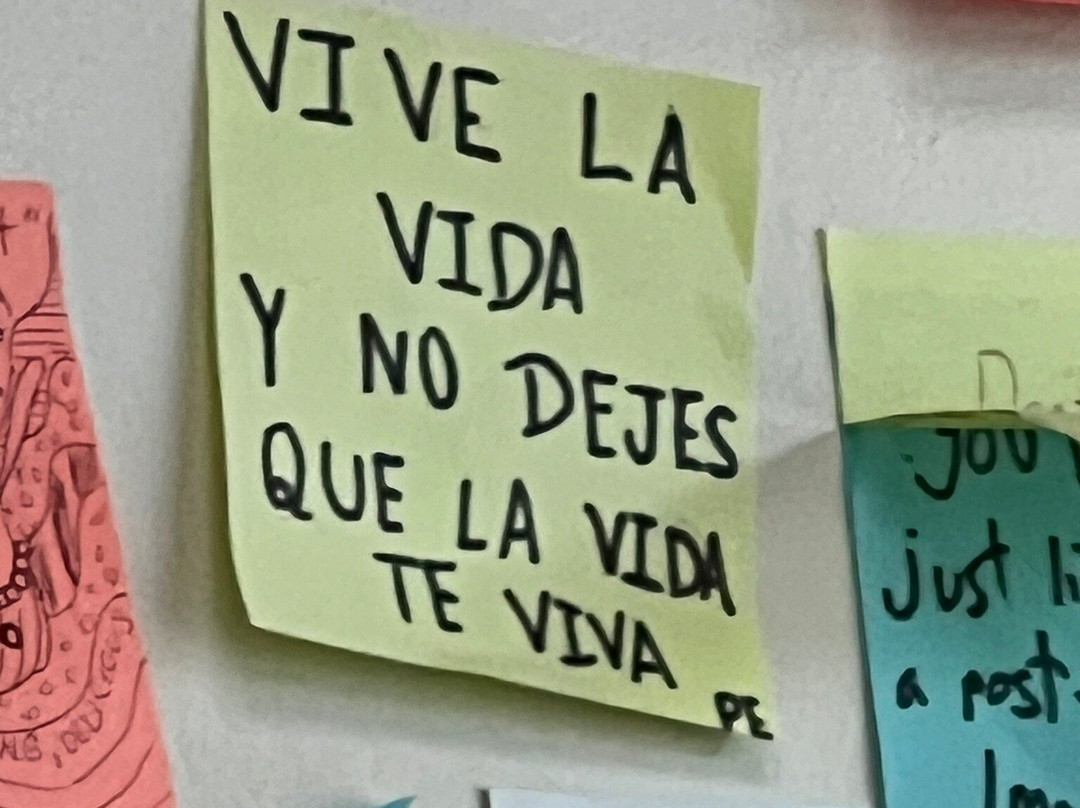 VIVE LA
VIDA
Y NO DEJES
QUE LA VIDA
TE VIVA
PE
just
a post